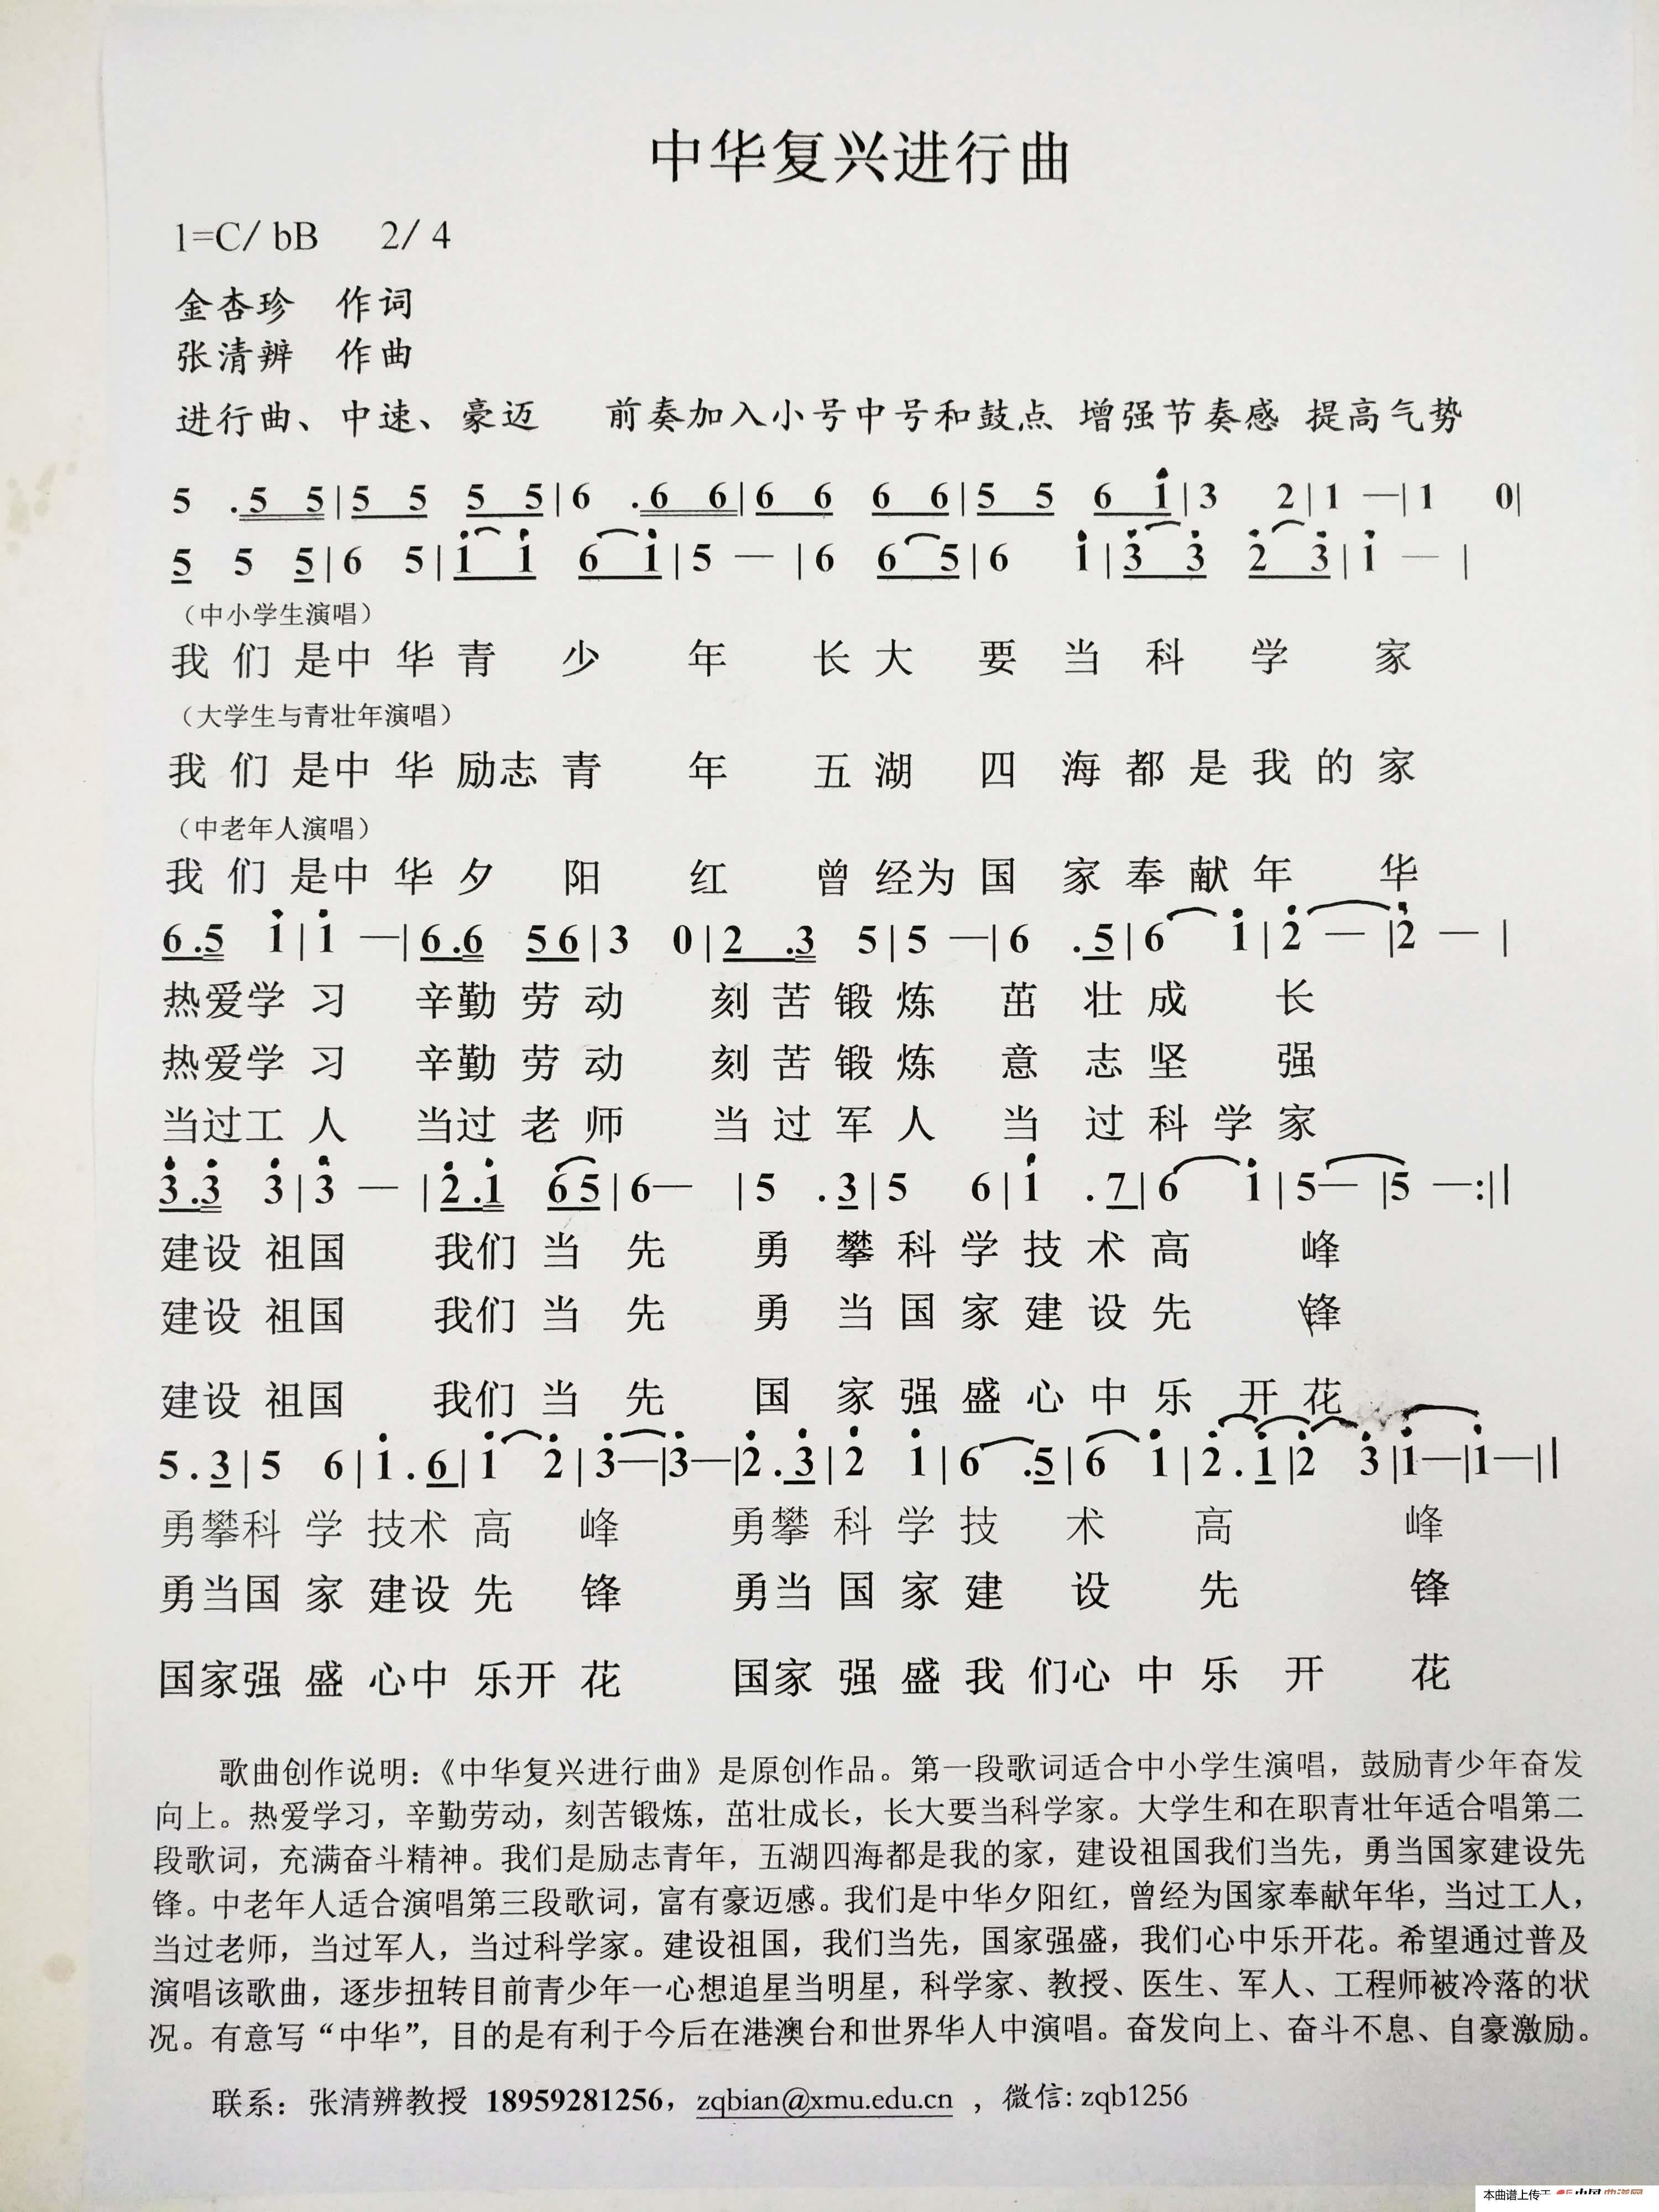 中华复兴进行曲
1=C/ bB 2/ 4
金杏珍 作词
张清辨 作曲
进行曲、中速、豪迈 前奏加入小号中号和鼓点 增强节奏感 提高气势
5 .5 5|5 5 5 5|6 .6 6|6 6 6 6|5 5 6 i|3 2|1 —|1 0|
5 5 5|6 5|i i 6 i|5 — |6 6 5|6 i|3 3 2 3|i — |
（中小学生演唱）
我 们 是中 华 青 少 年 长 大 要 当 科 学 家
（大学生与青壮年演唱）
我 们 是中 华 励志 青 年 五 湖 四 海 都 是 我 的 家
（中老年人演唱）
我 们 是中 华 夕 阳 红 曾 经为 国 家 奉 献 年 华
6.5 i|i —|6.6 5 6|3 0|2 .3 5|5 —|6 .5|6 i|2 — |2 — |
热爱学 习 辛勤 劳 动 刻 苦 锻 炼 茁 壮 成 长
热爱学 习 辛勤 劳 动 刻 苦 锻 炼 意 志 坚 强
当过工 人 当过 老 师 当 过 军 人 当 过 科 学 家
3.3 3|3 — |2.i 6 5|6— |5 .3|5 6|i .7|6 i|5— |5 —:||
建设 祖国 我们 当 先 勇 攀 科 学 技 术 高 峰
建设 祖国 我们 当 先 勇 当 国 家 建 设 先 锋
建设 祖国 我们 当 先 国 家 强 盛 心 中 乐 开 花
5.3|5 6|i.6|i 2|3—|3—|2.3|2 i|6 .5|6 i|2.i|2 3|i—|i—||
勇攀科 学 技术 高 峰 勇攀 科 学 技 术 高 峰
勇当国 家 建设 先 锋 勇当 国 家 建 设 先 锋
国家强 盛 心中 乐开 花 国家 强 盛 我 们心 中 乐 开 花
歌曲创作说明：《中华复兴进行曲》是原创作品。第一段歌词适合中小学生演唱，鼓励青少年奋发
向上。热爱学习，辛勤劳动，刻苦锻炼，茁壮成长，长大要当科学家。大学生和在职青壮年适合唱第二
段歌词，充满奋斗精神。我们是励志青年，五湖四海都是我的家，建设祖国我们当先，勇当国家建设先
锋。中老年人适合演唱第三段歌词，富有豪迈感。我们是中华夕阳红，曾经为国家奉献年华，当过工人，
当过老师，当过军人，当过科学家。建设祖国，我们当先，国家强盛，我们心中乐开花。希望通过普及
演唱该歌曲，逐步扭转目前青少年一心想追星当明星，科学家、教授、医生、军人、工程师被冷落的状
况。有意写“中华”，目的是有利于今后在港澳台和世界华人中演唱。奋发向上、奋斗不息、自豪激励。
联系：张清辨教授 18959281256，zqbian@xmu.edu.cn ，微信: zqb1256
本曲谱上传于